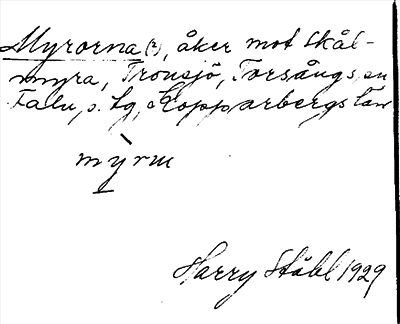 Myrorna (?), åker mot Skål-
myra, Tronsjö, Torsångs sn
Falu, s. tg, Kopparbergs län
myrm
Harry Ståhl 1929